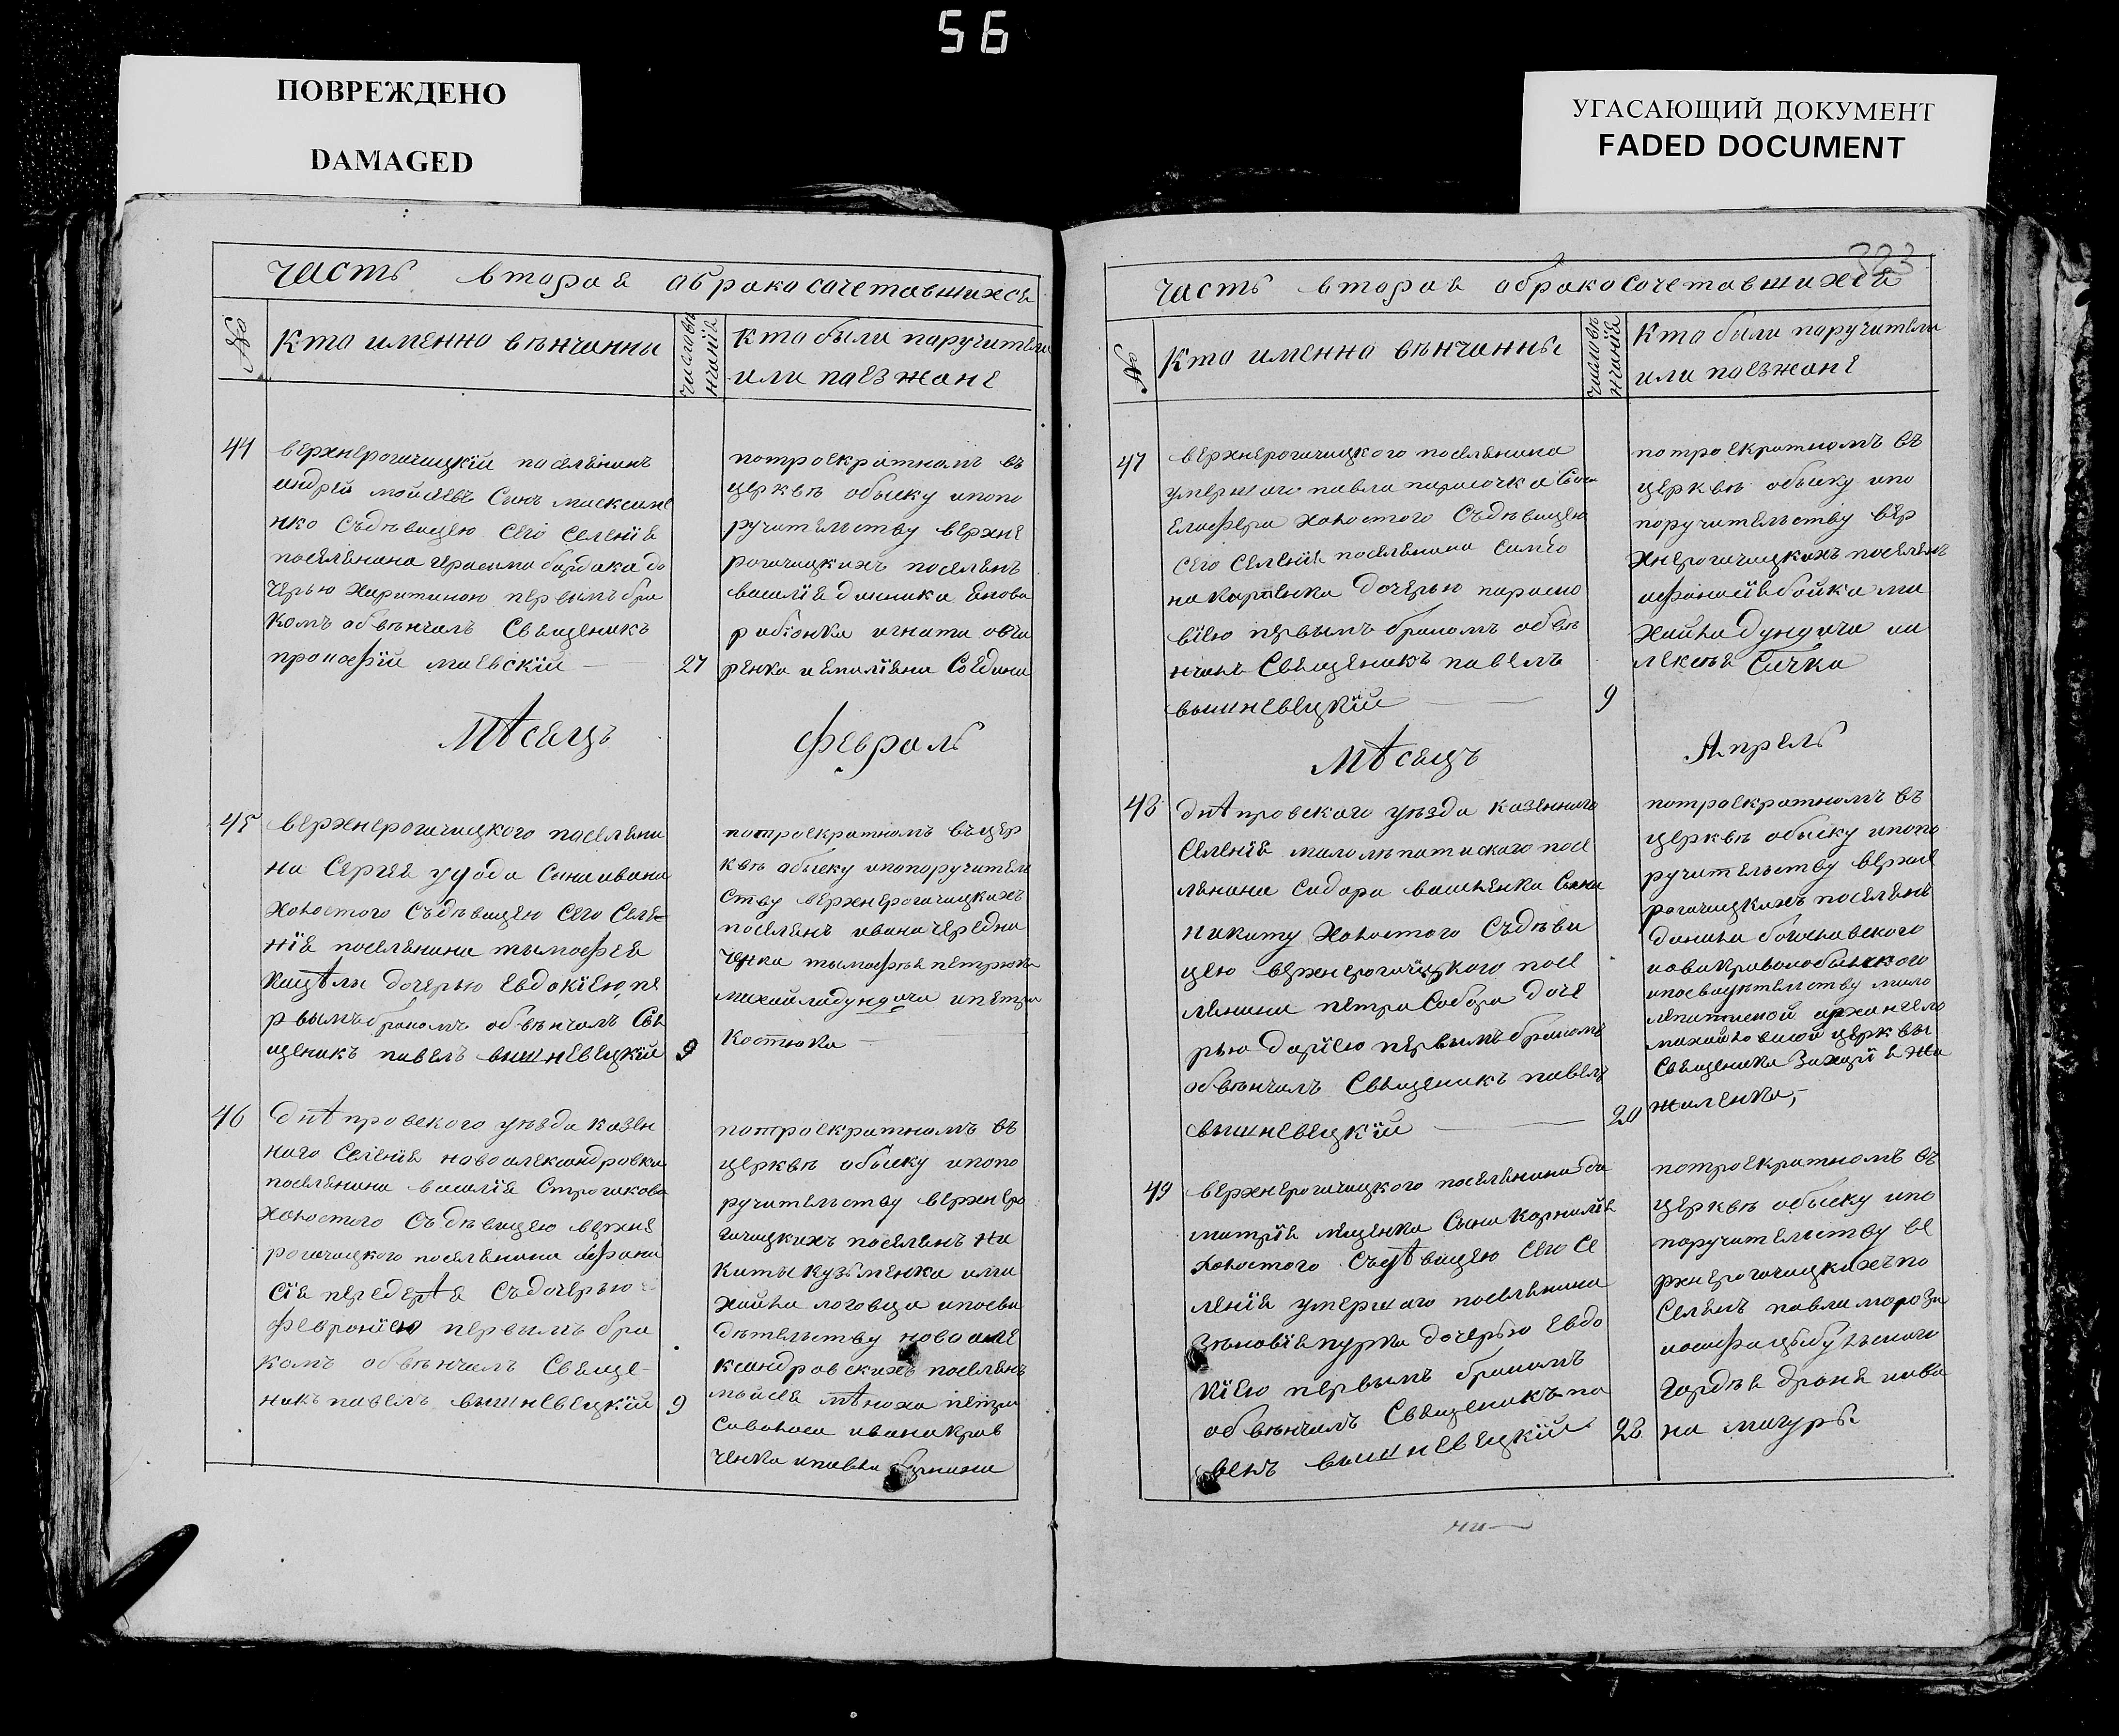 56
ПОВРЕЖДЕНО
DAMAGED
УГАСАЮЩИЙ ДОКУМЕНТ
FADED DOCUMENT
часть вторая обракосочетавшихся
№
Кто именно вѣнчанны
число вѣнчанїя
Кто были поручители
или поезжане
44
верхнерогачицкїй поселянинъ
андрей мойсеевъ Сынъ максиме
нко Съдѣвицею сего Селенїя
поселянина герасима бурдака до
черью Харитиною первымъ бра
комъ обвѣнчалъ Священикъ
прокофїй маевскїй
27
потроекратномъ въ
церквѣ обыску ипопо
ручительству верхне
рогачицкихъ поселянъ
василїя данника якова
рябконки игната овча
ренка и емилїяна
Мѣсяцъ Февраль
45
верхнерогачицкого поселяни
на Сергея удода Сына ивана
холостого Съдѣвицею Сего Селе
нїя поселянина тымофея
дочерью Евдокїею, пе
рвымъ бракомъ обвѣнчалъ Свя
щеникъ павелъ вишневецкїй
9
потроекратномъ въцер
квѣ обыску ипопоручитель
ству верхнерогачицкихъ
поселянъ ивана чередни
ченка тымофѣя петрюка
михайла дундича ипетра
Костюка
46
днѣпровского уѣзда казен
ного Селенїя новоалександровки
поселянина василїя Стрококова
холостого Съдѣвицею верхне
рогачицкого поселянина афана
сїя передерѣя Съдочерью
февронїею первымъ бра
комъ обвѣнчалъ Свяще
никъ павелъ вишневецкїй
9
потроекратномъ въ
церквѣ обыску ипопо
ручительству верхнеро
гачицкихъ поселянъ ни
киты кузьменка ими
хайла логовца ипосви
дѣтельству новоале
ксандровскихъ поселянъ
мойсея петра
ивана крав
ченка ипавла
323
часть вторая обракосочетавшихся
№
Кто именно вѣнчанны
число вѣнчанїя
Кто были поручители
или поезжане
47
верхнерогачицкого поселянина
умершаго павла парасочка Сына
елисфера холостого Съдѣвицею
сего Селенїя поселянина симїо
на карпенка дочерью параско
вїею первымъ бракомъ обвѣ
нчалъ Священикъ павелъ
вишневецкїй
9
потроекратномъ въ
церквѣ обыску ипо
поручительству вер
хнерогачицкихъ поселянъ
афанасїя бойка ми
хайла дундича иа
лексѣя Сичка
Мѣсяцъ Апрель
48
днѣпровского уѣзда казенного
Селенїя малолепатиского посе
лянина Сидора василенка Сына
никиту холостого Съдѣви
цею верхнерогачицкого посе
лянина петра Собора доче
рью дарїею первымъ бракомъ
обвѣнчалъ Священикъ павелъ
вишневецкїй
20
потроекратномъ въ
церквѣ обыску ипопо
ручительству верхне
рогачицкихъ поселянъ
данила богославского
ипосвидѣтельству мало
лепатиской архангело
михайловской церквы
Священика Захарїя Жи
жиленка,
49
верхнерогачицкого поселянина ди
митрїя Сына Корнилїя
холостого Съдѣвицею сего Се
ленїя умершаго поселянина
зѣновїя пурка дочерью Евдо
кїею первымъ бракомъ
обвѣнчалъ Священикъ па
велъ вишневецкїй
28
потроекратномъ въ
церквѣ обыску ипо
поручительству ве
рхнерогачицкихъ по
Селянъ павла мороза
иосифа цыбульского
гордѣя дроня ива
на мазура